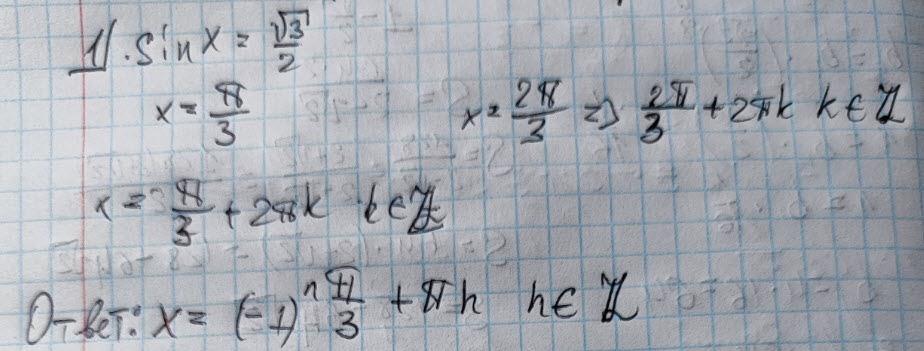 1). sin x = √3/2
x = π/3    x = 2π/3 => 2π/3 + 2πk k ∈ ℤ
x = π/3 + 2πk k ∈ ℤ
Ответ: x = (-1)ⁿ π/3 + πn n ∈ ℤ